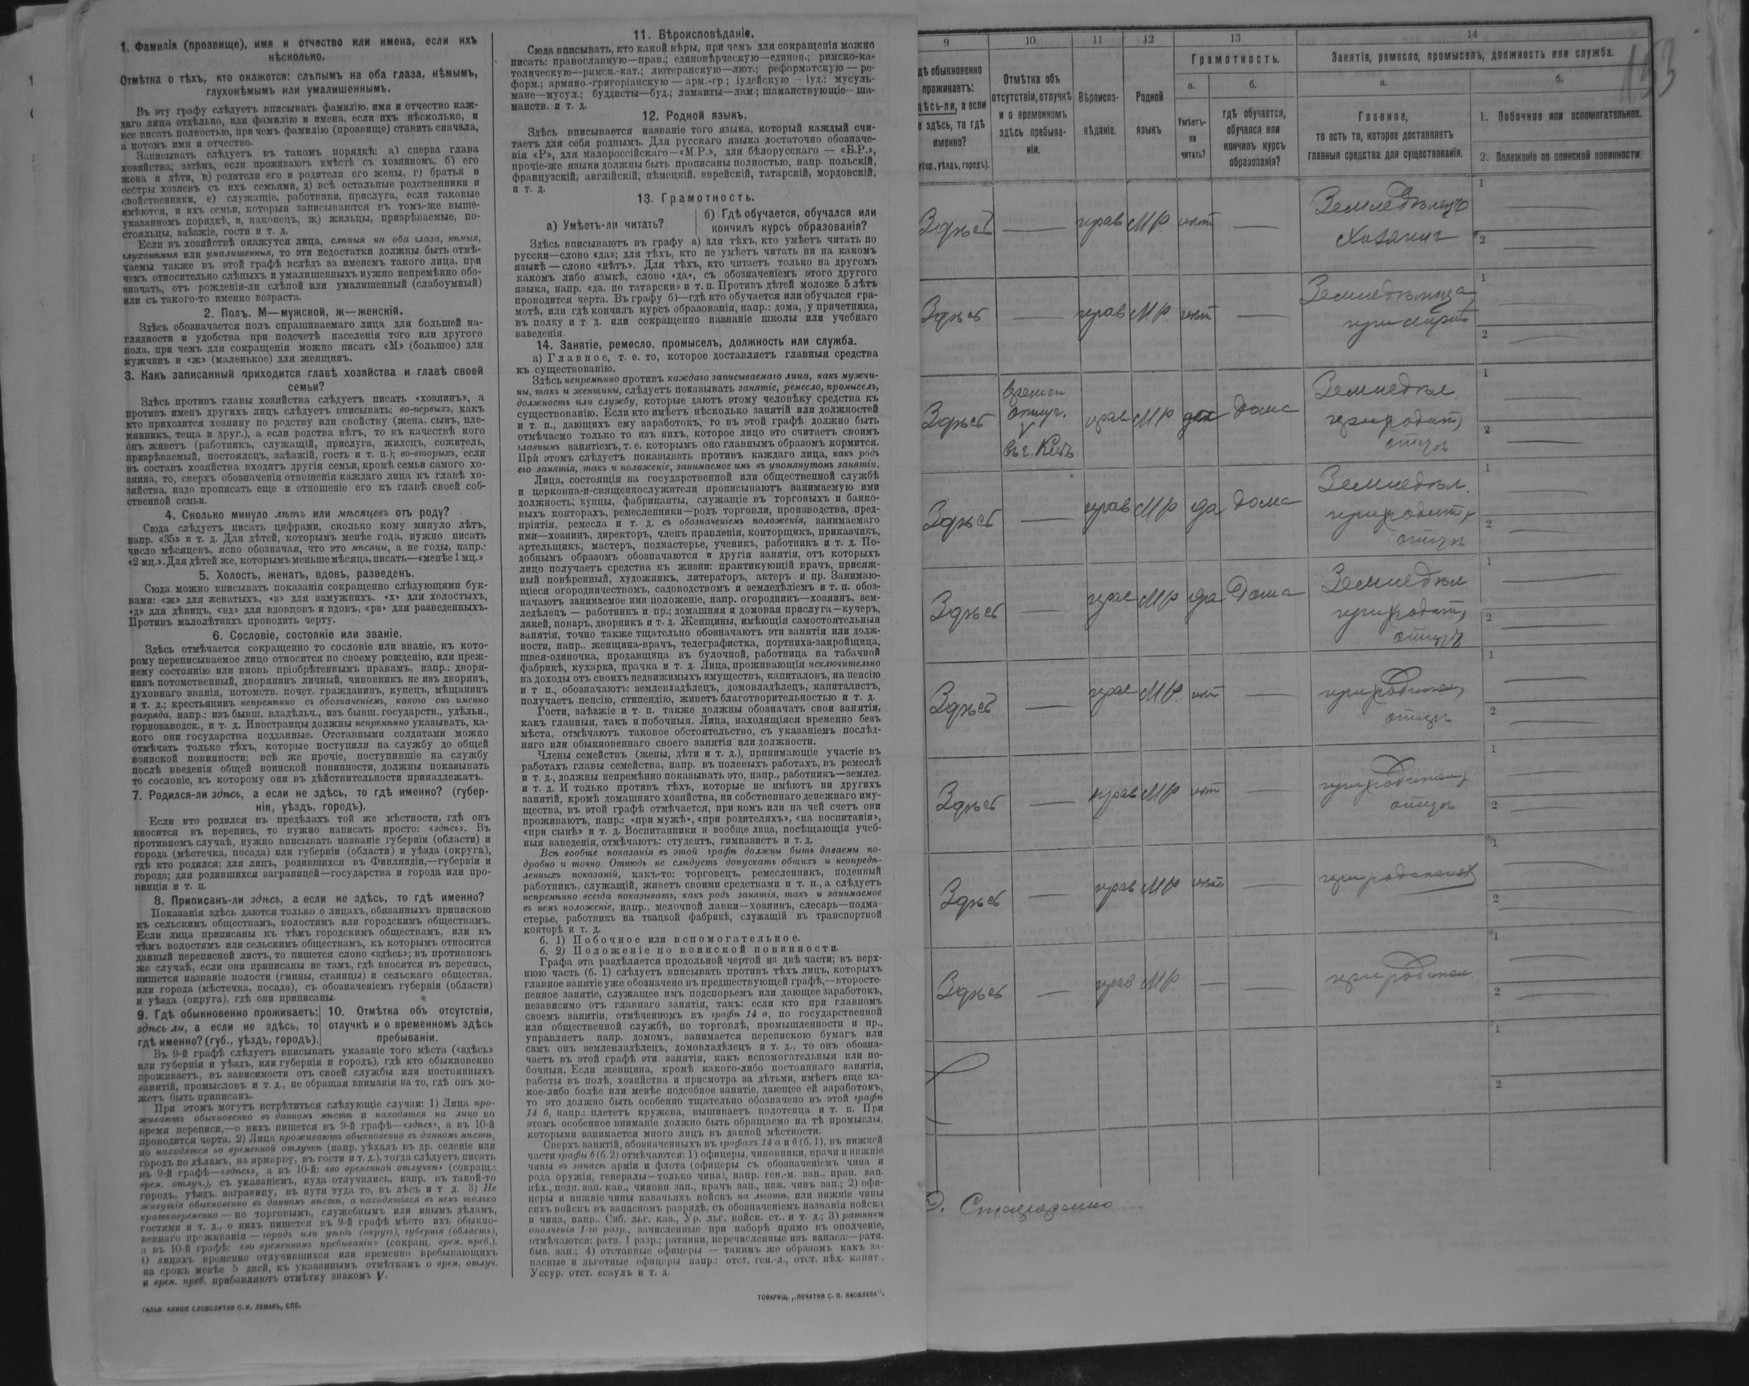 1. Фамилія (прозвище), имя и отчество или имена, если ихъ
нѣсколько.
Отмѣтка о тѣхъ, кто окажется: слѣпымъ на оба глаза, нѣмымъ,
глухонѣмымъ или умалишеннымъ.
Въ эту графу слѣдуетъ вписывать фамилію, имя и отчество каж-
даго лица отдѣльно, или фамилію и имена, если ихъ нѣсколько, и
все писать полностью, при чемъ фамилію (прозвище) ставить сначала,
а потомъ имя и отчество.
Записывать слѣдуетъ въ такомъ порядкѣ: а) сперва глава
хозяйства; затѣмъ, если проживаютъ вмѣстѣ съ хозяиномъ, б) его
жена и дѣти, в) родители его и родители его жены, г) братья и
сестры хозяевъ съ ихъ семьями, д) всѣ остальные родственники и
свойственники, е) служащіе, работники, прислуга, если таковые
имѣются, и ихъ семьи, которыя записываются въ томъ-же выше-
указанномъ порядкѣ, и, наконецъ, ж) жильцы, призрѣваемые, по-
стояльцы, заѣзжіе, гости и т. д.
Если въ хозяйствѣ окажутся лица, слѣпыя на оба глаза, нѣмыя,
глухонѣмыя или умалишенныя, то эти недостатки должны быть отмѣ-
чаемы также въ этой графѣ вслѣдъ за именемъ такого лица, при
чемъ относительно слѣпыхъ и умалишенныхъ нужно непремѣнно обо-
значать, отъ рожденія-ли слѣпой или умалишенный (слабоумный)
или съ такого-то именно возраста.
2. Полъ. М—мужской, ж—женскій.
Здѣсь обозначается полъ спрашиваемаго лица для большей на-
глядности и удобства при подсчетѣ населенія того или другого
пола, при чемъ для сокращенія можно писать «М» (большое) для
мужчинъ и «ж» (маленькое) для женщинъ.
3. Какъ записанный приходится главѣ хозяйства и главѣ своей
семьи?
Здѣсь противъ главы хозяйства слѣдуетъ писать «хозяинъ», а
противъ именъ другихъ лицъ слѣдуетъ вписывать: во-первыхъ, какъ
кто приходится хозяину по родству или свойству (жена, сынъ, пле-
мянникъ, теща и друг.), а если родства нѣтъ, то въ качествѣ кого
онъ живетъ (работникъ, служащій, прислуга, жилецъ, сожитель,
призрѣваемый, постоялецъ, заѣзжій, гость и т. п.); во-вторыхъ, если
въ составъ хозяйства входятъ другія семьи, кромѣ семьи самого хо-
зяина, то, сверхъ обозначенія отношенія каждаго лица къ главѣ хо-
зяйства, надо прописать еще и отношеніе его къ главѣ своей соб-
ственной семьи.
4. Сколько минуло лѣтъ или мѣсяцевъ отъ роду?
Сюда слѣдуетъ писать цифрами, сколько кому минуло лѣтъ,
напр. «35» и т. д. Для дѣтей, которымъ менѣе года, нужно писать
число мѣсяцевъ, ясно обозначая, что это мѣсяцы, а не годы, напр.:
«2 мц.». Для дѣтей же, которымъ меньше мѣсяца, писать—«менѣе 1 мц.»
5. Холостъ, женатъ, вдовъ, разведенъ.
Сюда можно вписывать показанія сокращенно слѣдующими бук-
вами: «ж» для женатыхъ, «з» для замужнихъ, «х» для холостыхъ,
«д» для дѣвицъ, «вд» для вдовцовъ и вдовъ, «рв» для разведенныхъ.
Противъ малолѣтнихъ проводить черту.
6. Сословіе, состояніе или званіе.
Здѣсь отмѣчается сокращенно то сословіе или званіе, къ кото-
рому переписываемое лицо относится по своему рожденію, или преж-
нему состоянію или вновь пріобрѣтеннымъ правамъ, напр.: дворя-
нинъ потомственный, дворянинъ личный, чиновникъ не изъ дворянъ,
духовнаго званія, потомств. почет. гражданинъ, купецъ, мѣщанинъ
и т. д.; крестьянинъ непремѣнно съ обозначеніемъ, какого онъ именно
разряда, напр.: изъ бывш. владѣльч., изъ бывш. государств., удѣльн.,
горнозаводск., и т. д. Иностранцы должны непремѣнно указывать, ка-
кого они государства подданные. Отставными солдатами можно
отмѣчать только тѣхъ, которые поступили на службу до общей
воинской повинности; всѣ же прочіе, поступившіе на службу
послѣ введенія общей воинской повинности, должны показывать
то сословіе, къ которому они въ дѣйствительности принадлежатъ.
7. Родился-ли здѣсь, а если не здѣсь, то гдѣ именно? (губер-
нія, уѣздъ, городъ).
Если кто родился въ предѣлахъ той же мѣстности, гдѣ онъ
вносится въ перепись, то нужно написать просто: «здѣсь». Въ
противномъ случаѣ, нужно вписывать названіе губерніи (области) и
города (мѣстечка, посада) или губерніи (области) и уѣзда (округа),
гдѣ кто родился; для лицъ, родившихся въ Финляндіи,—губерніи и
города; для родившихся заграницей—государства и города или про-
винціи и т. п.
8. Приписанъ-ли здѣсь, а если не здѣсь, то гдѣ именно?
Показанія здѣсь даются только о лицахъ, обязанныхъ припискою
къ сельскимъ обществамъ, волостямъ или городскимъ обществамъ.
Если лица приписаны къ тѣмъ городскимъ обществамъ, или къ
тѣмъ волостямъ или сельскимъ обществамъ, къ которымъ относится
данный переписной листъ, то пишется слово «здѣсь»; въ противномъ
же случаѣ, если они приписаны не тамъ, гдѣ вносятся въ перепись,
пишется названіе волости (гмины, станицы) и сельскаго общества,
или города (мѣстечка, посада), съ обозначеніемъ губерніи (области)
и уѣзда (округа), гдѣ они приписаны.
9. Гдѣ обыкновенно проживаетъ:
здѣсь ли, а если не здѣсь, то
гдѣ именно? (губ., уѣздъ, городъ).
10. Отмѣтка объ отсутствіи,
отлучкѣ и о временномъ здѣсь
пребываніи.
Въ 9-й графѣ слѣдуетъ вписывать указаніе того мѣста («здѣсь»
или губернія и уѣздъ, или губернія и городъ), гдѣ кто обыкновенно
проживаетъ, въ зависимости отъ своей службы или постоянныхъ
занятій, промысловъ и т. д., не обращая вниманія на то, гдѣ онъ мо-
жетъ быть приписанъ.
При этомъ могутъ встрѣтиться слѣдующіе случаи: 1) Лица про-
живаютъ обыкновенно въ данномъ мѣстѣ и находятся на лицо во
время переписи,—о нихъ пишется въ 9-й графѣ—«здѣсь», а въ 10-й
проводится черта. 2) Лица проживаютъ обыкновенно въ данномъ мѣстѣ,
но находятся во временной отлучкѣ (напр. уѣхалъ въ др. селеніе или
городъ по дѣламъ, на ярмарку, въ гости и т. д.), тогда слѣдуетъ писать
въ 9-й графѣ—«здѣсь», а въ 10-й: «во временной отлучкѣ» (сокращ.:
врем. отлуч.), съ указаніемъ, куда отлучились, напр. въ такой-то
городъ, уѣздъ, заграницу, въ пути туда то, въ лѣсъ и т. д. 3) Не
живутія обыкновенно въ данномъ мѣстѣ, а находящіяся въ немъ только
кратковременно — по торговымъ, служебнымъ или инымъ дѣламъ,
гостями и т. д., о нихъ пишется въ 9-й графѣ мѣсто ихъ обыкно-
веннаго проживанія — городъ или уѣздъ (округъ), губернія (область),
а въ 10-й графѣ: «во временномъ пребываніи» (сокращ. врем. преб.).
О лицахъ временно отлучившихся или временно пребывающихъ
на срокъ менѣе 5 дней, къ указаннымъ отмѣткамъ о врем. отлуч.
и врем. преб. прибавляютъ отмѣтку знакомъ V.
ГАЛЬВ. КЛИШЕ СЛОВОЛИТНИ О. И. ЛЕМАНЪ, СПБ.
11. Вѣроисповѣданіе.
Сюда вписывать, кто какой вѣры, при чемъ для сокращенія можно
писать: православную—прав.; единовѣрческую—единов.; римско-ка-
толическую—римск.-кат.; лютеранскую—лют.; реформатскую — ре-
форм.; армяно-григоріанскую — арм.-гр; іудейскую — іуд.; мусуль-
мане—мусул.; буддисты—буд.; ламаиты—лам.; шаманствующіе—ша-
манств. и т. д.
12. Родной языкъ.
Здѣсь вписывается названіе того языка, который каждый счи-
таетъ для себя роднымъ. Для русскаго языка достаточно обозначе-
нія «Р», для малороссійскаго—«М.Р.», для бѣлорусскаго — «Б.Р.»,
прочіе-же языки должны быть прописаны полностью, напр. польскій,
французскій, англійскій, нѣмецкій, еврейскій, татарскій, мордовскій,
и т. д.
13. Грамотность.
а) Умѣетъ-ли читать?
б) Гдѣ обучается, обучался или
кончилъ курсъ образованія?
Здѣсь вписываютъ въ графу а) для тѣхъ, кто умѣетъ читать по
русски—слово «да»; для тѣхъ, кто не умѣетъ читать ни на какомъ
языкѣ — слово «нѣтъ». Для тѣхъ, кто читаетъ только на другомъ
какомъ либо языкѣ, слово «да», съ обозначеніемъ этого другого
языка, напр. «да. по татарски» и т. п. Противъ дѣтей моложе 5 лѣтъ
проводится черта. Въ графу б)—гдѣ кто обучается или обучался гра-
мотѣ, или гдѣ кончилъ курсъ образованія, напр.: дома, у причетника,
въ полку и т. д. или сокращенно названіе школы или учебнаго
заведенія.
14. Занятіе, ремесло, промыселъ, должность или служба.
а) Главное, т. е. то, которое доставляетъ главныя средства
къ существованію.
Здѣсь непремѣнно противъ каждаго записываемаго лица, какъ мужчи-
ны, такъ и женщины, слѣдуетъ показывать занятіе, ремесло, промыселъ,
должность или службу, которые даютъ этому человѣку средства къ
существованію. Если кто имѣетъ нѣсколько занятій или должностей
и т. п., дающихъ ему заработокъ, то въ этой графѣ должно быть
отмѣчаемо только то изъ нихъ, которое лицо это считаетъ своимъ
главнымъ занятіемъ, т. е. которымъ оно главнымъ образомъ кормится.
При этомъ слѣдуетъ показывать противъ каждаго лица, какъ родъ
его занятія, такъ и положеніе, занимаемое имъ въ упомянутомъ занятіи.
Лица, состоящія на государственной или общественной службѣ
и церковно-и-священнослужители прописываютъ занимаемую ими
должность; купцы, фабриканты, служащіе въ торговыхъ и банко-
выхъ конторахъ, ремесленники—родъ торговли, производства, пред-
пріятія, ремесла и т. д. съ обозначеніемъ положенія, занимаемаго
ими—хозяинъ, директоръ, членъ правленія, конторщикъ, приказчикъ,
артельщикъ, мастеръ, подмастерье, ученикъ, работникъ и т. д. По-
добнымъ образомъ обозначаются и другія занятія, отъ которыхъ
лицо получаетъ средства къ жизни: практикующій врачъ, присяж-
ный повѣренный, художникъ, литераторъ, актеръ и пр. Занимаю-
щіеся огородничествомъ, садоводствомъ и земледѣліемъ и т. п. обоз-
начаютъ занимаемое ими положеніе, напр. огородникъ—хозяинъ, зем-
ледѣлецъ — работникъ и пр.; домашняя и домовая прислуга—кучеръ,
лакей, поваръ, дворникъ и т. д. Женщины, имѣющія самостоятельныя
занятія, точно также тщательно обозначаютъ эти занятія или долж-
ности, напр.. женщина-врачъ, телеграфистка, портниха-закройщица,
швея-одиночка, продавщица въ булочной, работница на табачной
фабрикѣ, кухарка, прачка и т. д. Лица, проживающія исключительно
на доходы отъ своихъ недвижимыхъ имуществъ, капиталовъ, на пенсію
и т п., обозначаютъ: землевладѣлецъ, домовладѣлецъ, капиталистъ,
получаетъ пенсію, стипендію, живетъ благотворительностью и т. д.
Гости, заѣзжіе и т. п. также должны обозначать свои занятія,
какъ главныя, такъ и побочныя. Лица, находящіяся временно безъ
мѣста, отмѣчаютъ таковое обстоятельство, съ указаніемъ послѣд-
няго или обыкновеннаго своего занятія или должности.
Члены семействъ (жены, дѣти и т. д.), принимающіе участіе въ
работахъ главы семейства, напр. въ полевыхъ работахъ, въ ремеслѣ
и т. д., должны непремѣнно показывать это, напр., работникъ—землед.
и т. д. И только противъ тѣхъ, которые не имѣютъ ни другихъ
занятій, кромѣ домашняго хозяйства, ни собственнаго денежнаго иму-
щества, въ этой графѣ отмѣчается, при комъ или на чей счетъ они
проживаютъ, напр.: «при мужѣ», «при родителяхъ», «на воспитаніи»,
«при сынѣ» и т. д. Воспитанники и вообще лица, посѣщающія учеб-
ныя заведенія, отмѣчаютъ: студентъ, гимназистъ и т. д.
Всѣ вообще показанія въ этой графѣ должны быть даваемы по-
дробно и точно. Отнюдь не слѣдуетъ допускать общихъ и неопредѣ-
ленныхъ показаній, какъ-то: торговецъ, ремесленникъ, поденный
работникъ, служащій, живетъ своими средствами и т. п., а слѣдуетъ
непремѣнно всегда показывать, какъ родъ занятія, такъ и занимаемое
въ немъ положеніе, напр., мелочной лавки—хозяинъ, слесарь—подма-
стерье, работникъ на ткацкой фабрикѣ, служащій въ транспортной
конторѣ и т. д.
б. 1) Побочное или вспомогательное.
б. 2) Положеніе по воинской повинности.
Графа эта раздѣляется продольной чертой на двѣ части; въ верх-
нюю часть (б. 1) слѣдуетъ вписывать противъ тѣхъ лицъ, которыхъ
главное занятіе уже обозначено въ предшествующей графѣ,—второсте-
пенное занятіе, служащее имъ подспорьемъ или дающее заработокъ,
независимо отъ главнаго занятія, такъ: если кто при главномъ
своемъ занятіи, отмѣченномъ въ графѣ 14 а, по государственной
или общественной службѣ, по торговлѣ, промышленности и пр.,
управляетъ напр. домомъ, занимается перепискою бумагъ или
самъ онъ землевладѣлецъ, домовладѣлецъ и т. д., то онъ обозна-
чаетъ въ этой графѣ эти занятія, какъ вспомогательныя или по-
бочныя. Если женщина, кромѣ какого-либо постояннаго занятія,
работы въ полѣ, хозяйства и присмотра за дѣтьми, имѣетъ еще ка-
кое-либо болѣе или менѣе подсобное занятіе, дающее ей заработокъ,
то это должно быть особенно тщательно обозначено въ этой графѣ
14 б, напр.: плететъ кружева, вышиваетъ полотенца и т. п. При
этомъ особенное вниманіе должно быть обращаемо на тѣ промыслы,
которыми занимается много лицъ въ данной мѣстности.
Сверхъ занятій, обозначенныхъ въ графахъ 14 а и б (б. 1), въ нижней
части графы б (б. 2) отмѣчаются: 1) офицеры, чиновники, врачи и нижніе
чины въ запасѣ арміи и флота (офицеры съ обозначеніемъ чина и
рода оружія, генералы—только чина), напр. ген.-м. зап.. прап. зап.
пѣх., подп. зап. кав., чиновн. зап., врачъ зап., ниж. чинъ зап.; 2) офи-
церы и нижніе чины казачьихъ войскъ на льготѣ, или нижніе чины
сихъ войскъ въ запасномъ разрядѣ, съ обозначеніемъ названія войска
и чина, напр.. Сиб. льг. каз., Ур. льг. войск. ст.. и т. д.; 3) ратники
ополченія 1-го разр., зачисленные при наборѣ прямо въ ополченіе,
отмѣчаются: ратн. 1 разр.; ратники, перечисленные изъ запаса:—ратн.
быв. зап.; 4) отставные офицеры — такимъ же образомъ какъ за-
пасные и льготные офицеры напр.: отст. ген.-л., отст. пѣх. капит.,
Уссур. отст. есаулъ и т. д.
ТОВАРИЩ. „ПЕЧАТНЯ С. П. ЯКОВЛЕВА".
153
9 10 11 12 13 14
дѣ обыкновенно
проживаетъ:
дѣсь-ли, а если
е здѣсь, то гдѣ
именно?
губер., уѣздъ, городъ).
Отмѣтка объ
отсутствіи, отлучкѣ
и о временномъ
здѣсь пребыва-
ніи.
Вѣроиспо-
вѣданіе.
Родной
языкъ
Грамотность.
а.
Умѣетъ-
ли
читать?
б.
гдѣ обучается,
обучался или
кончилъ курсъ
образованія?
Занятіе, ремесло, промыселъ, должность или служба.
а.
Главное,
то есть то, которое доставляетъ
главныя средства для существованія.
б.
1. Побочное или вспомогательное.
2. Положеніе по воинской повинности.
Здѣсь — прав МР нѣт — Земледѣлецъ
хозяинъ
1
2
Здѣсь — прав МР нѣт —
1
2
Здѣсь времен
отлуч.
V
прав МР да дома Земледѣл.
отцѣ
1
2
Здѣсь — прав МР да дома Земледѣл.
отцѣ
1
2
Здѣсь — прав МР да Дома Земледѣл
отцѣ
1
2
Здѣсь — прав МР. нѣт —
отцѣ
1
2
Здѣсь — прав МР нѣт —
отцѣ
1
2
Здѣсь — прав МР нѣт —
1
2
Здѣсь — прав МР — —
1
2
1
2